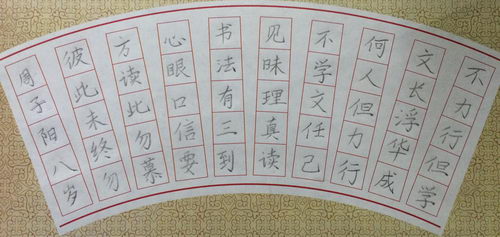 不力行但学
文长浮华成
何人但力行
不学文任己
见昧理真读
书法有三到
心眼口信要
方读此勿慕
彼此未终勿
周子阳八岁